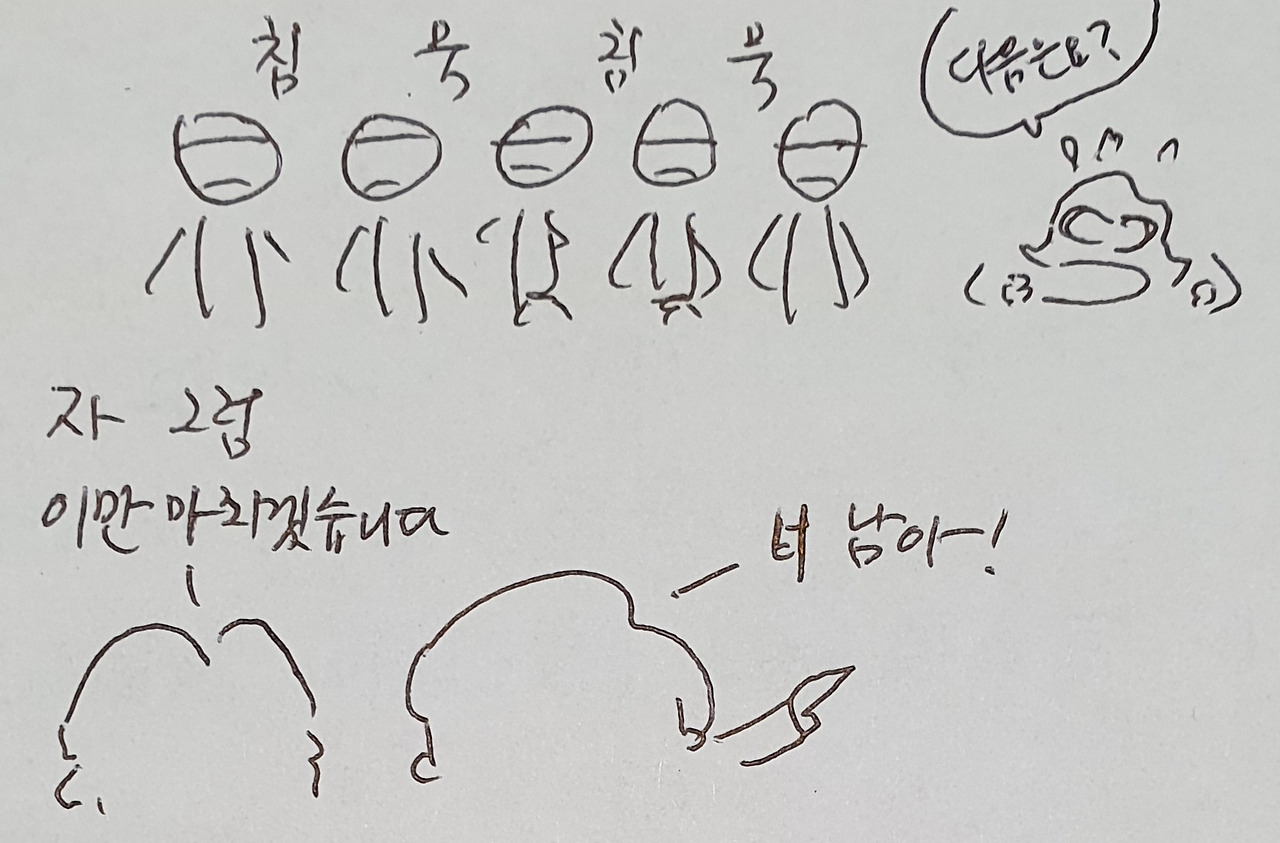 침 묵 침 묵
다음은요?
자 그럼
이만 마치겠습니다
너 남아!